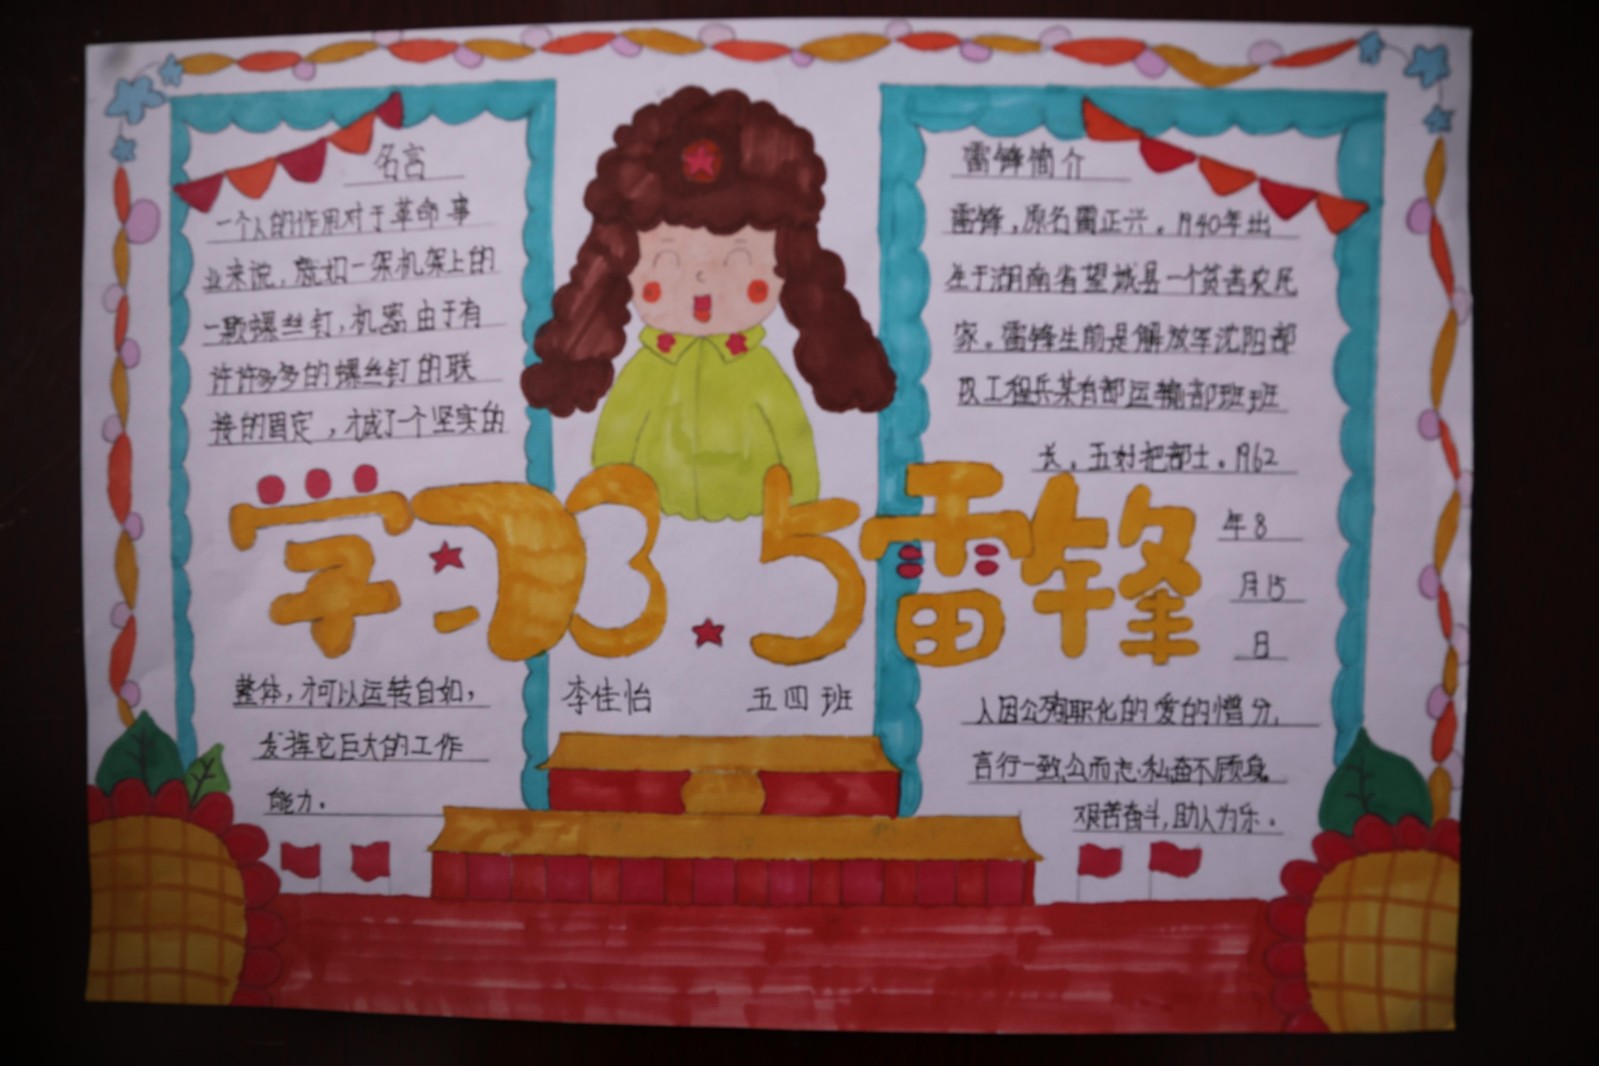 名言
一个人的作用对于革命事
业来说,就如一架机架上的
一颗螺丝钉,机器由于有
许许多多的螺丝钉的联
接的固定,才成了一个坚实的
整体,才可以运转自如,
发挥它巨大的工作
能力.
学习3.5雷锋
李佳怡 五四班
雷锋简介
雷锋,原名雷正兴。1940年出
生于湖南省望城县一个贫苦农民
家。雷锋生前是解放军沈阳部
工程兵某有部运输部班班
长。五好把部士。1962
年8
月15
日
人因公殉职化的爱的憎分,
言行一致公而志.私奋不顾身
艰苦奋斗,助人为乐。